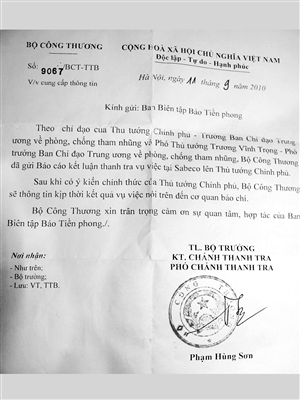 BỘ CÔNG THƯƠNG
CỘNG HOÀ XÃ HỘI CHỦ NGHĨA VIỆT NAM
Độc lập - Tự do - Hạnh phúc
Số: 9067/BCT-TTB
V/v cung cấp thông tin
Hà Nội, ngày 11 tháng 9 năm 2010
Kính gửi: Ban Biên tập Báo Tiền phong.
Theo chỉ đạo của Thủ tướng Chính phủ - Trưởng Ban Chỉ đạo Trung
ương về phòng, chống tham nhũng và Phó Thủ tướng Trương Vĩnh Trọng - Phó
trưởng Ban Chỉ đạo Trung ương về phòng, chống tham nhũng, Bộ Công Thương
đã gửi Báo cáo kết luận thanh tra vụ việc tại Sabeco lên Thủ tướng Chính phủ.
Sau khi có ý kiến chính thức của Thủ tướng Chính phủ, Bộ Công Thương
sẽ thông tin kịp thời kết quả vụ việc nói trên đến cơ quan báo chí.
Bộ Công Thương xin trân trọng cám ơn sự quan tâm, hợp tác của Ban
Biên tập Báo Tiền phong./.
Nơi nhận:
- Như trên;
- Bộ trưởng;
- Lưu: VT, TTB.
TL. BỘ TRƯỞNG
KT. CHÁNH THANH TRA
PHÓ CHÁNH THANH TRA
Phạm Hùng Sơn